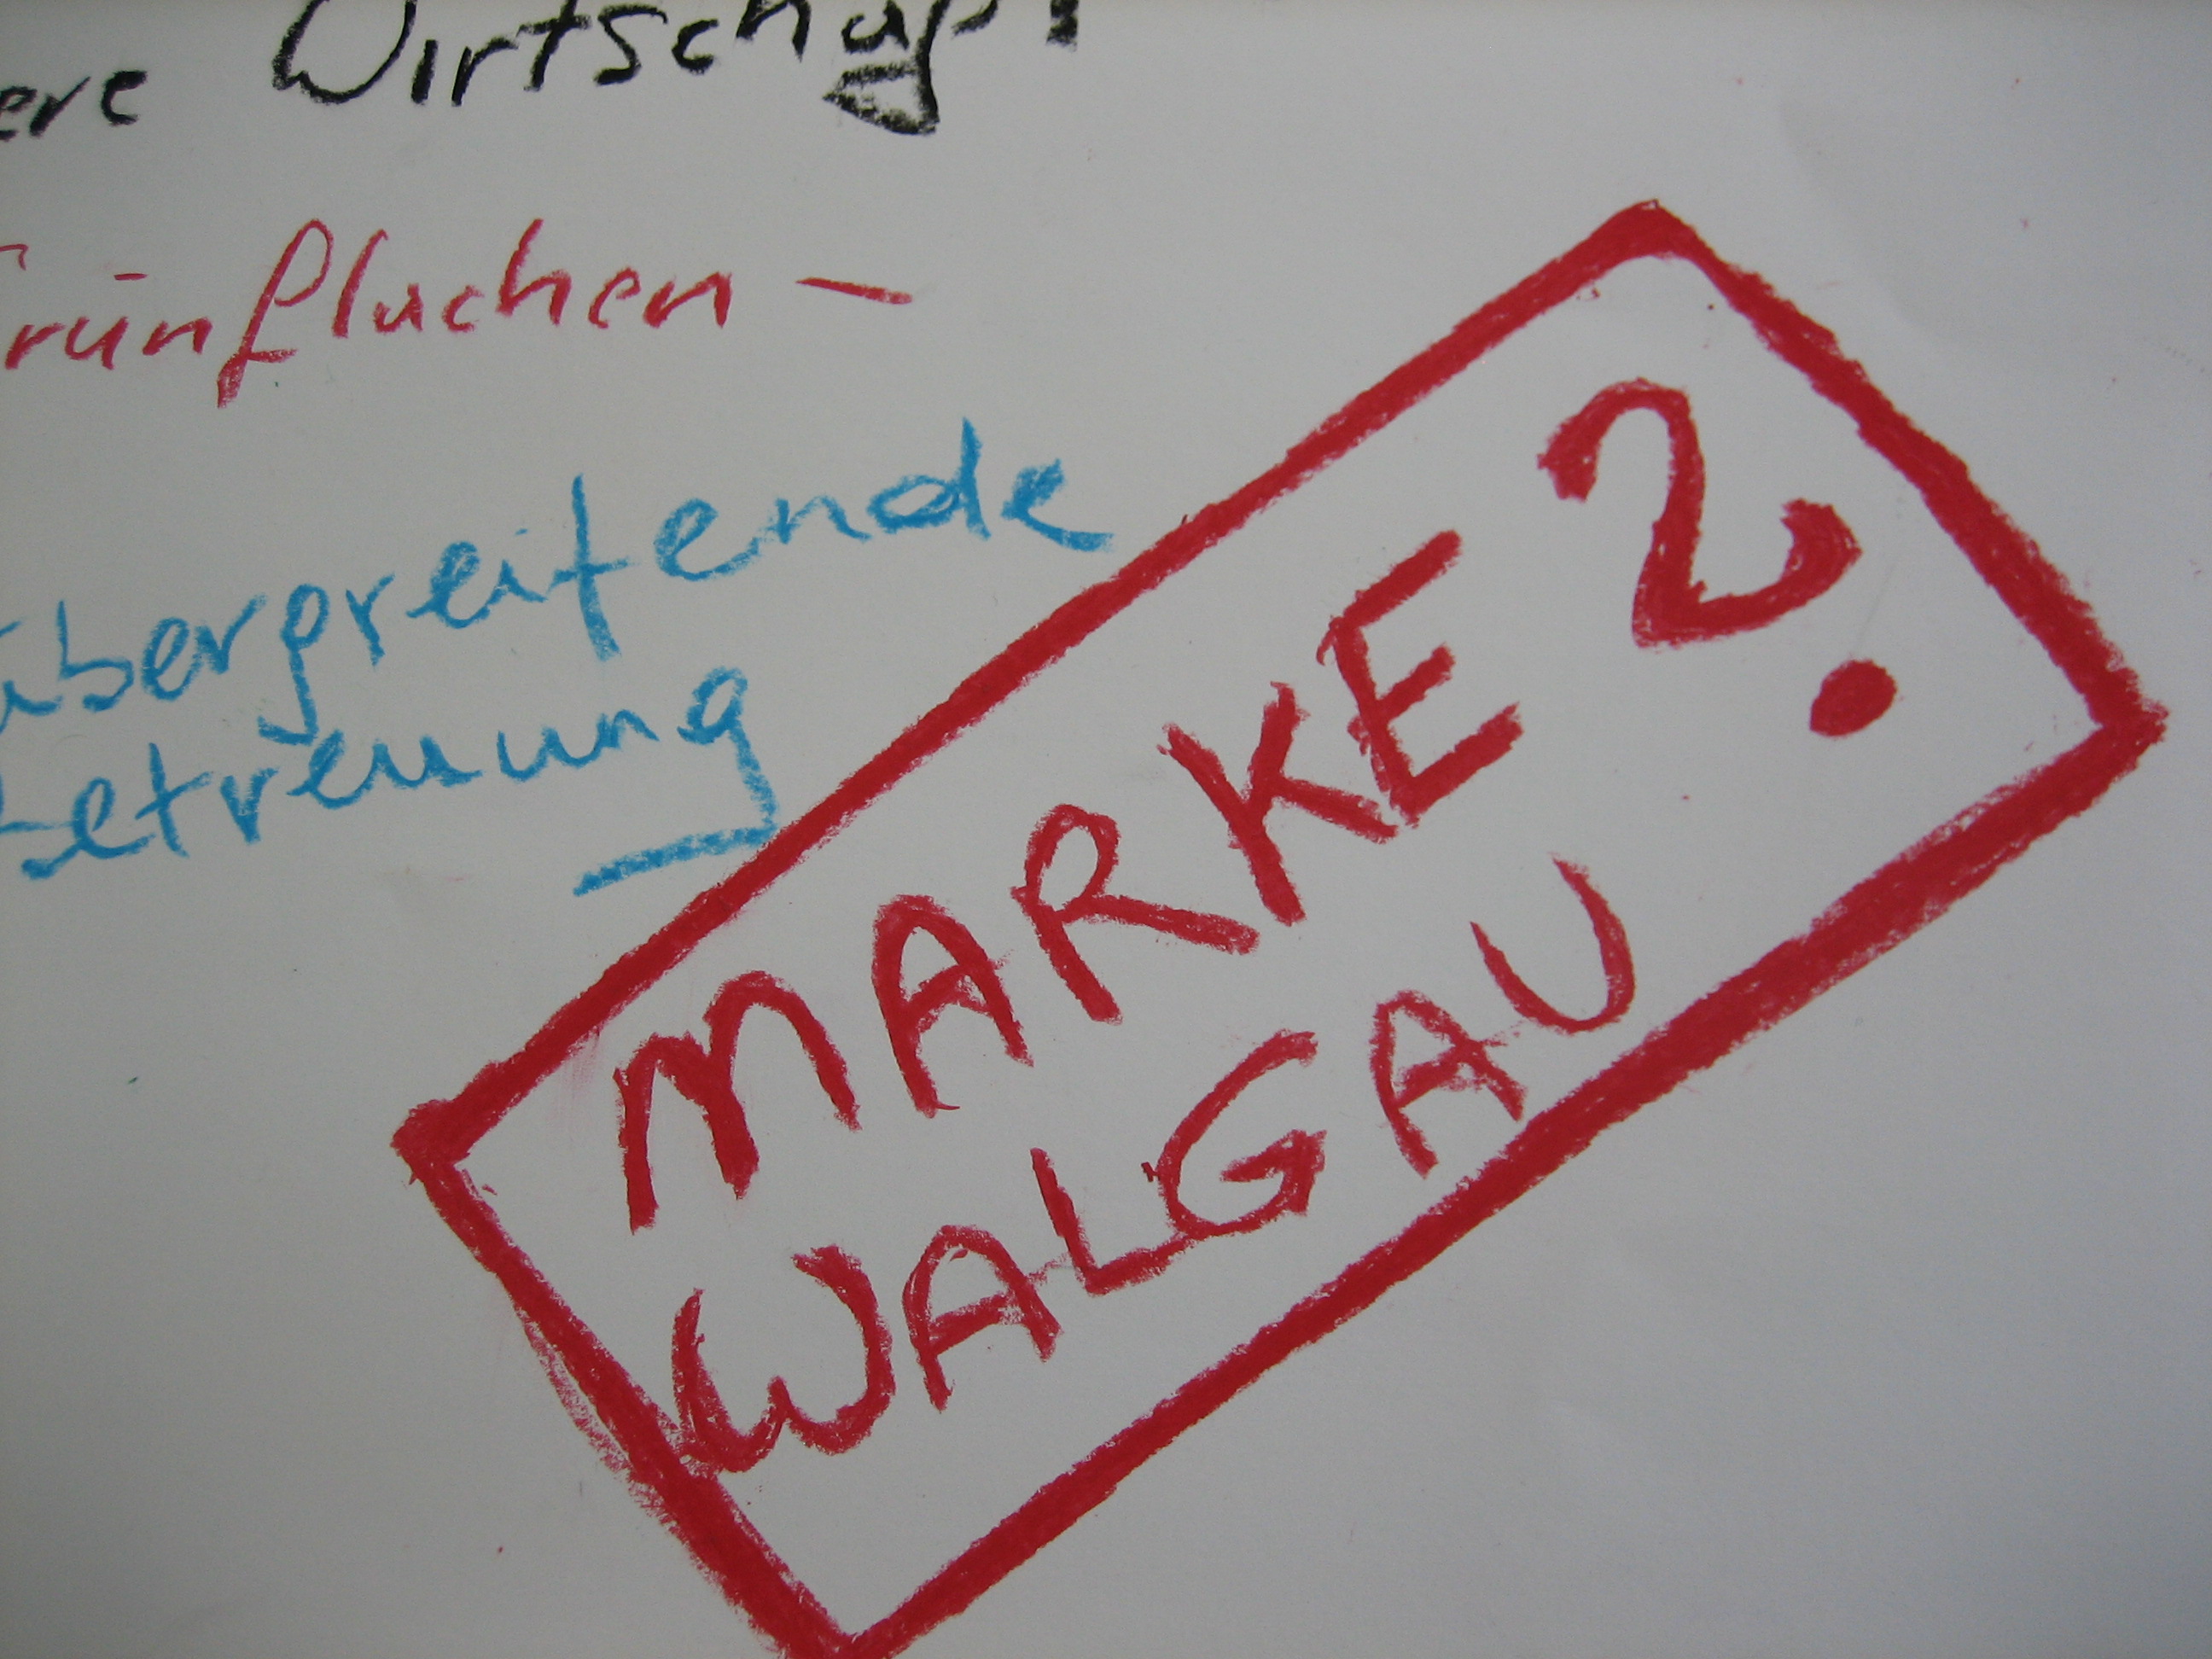 ere Wirtschaft
rünflachen -
übergreifende
Betreuung
MARKE ?
WALGAU